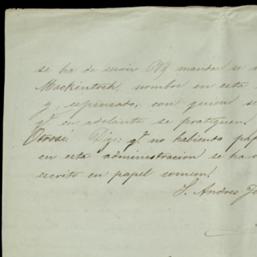 se ha de servir V. mandar se
Mackintosh, nombre en esta
y, espensado, con quien se
qº en adelante se pratiquen.
Otrosí: Digo: qº no habiendo pap
en esta administracion se ha
escrito en papel comun.
S. Andres